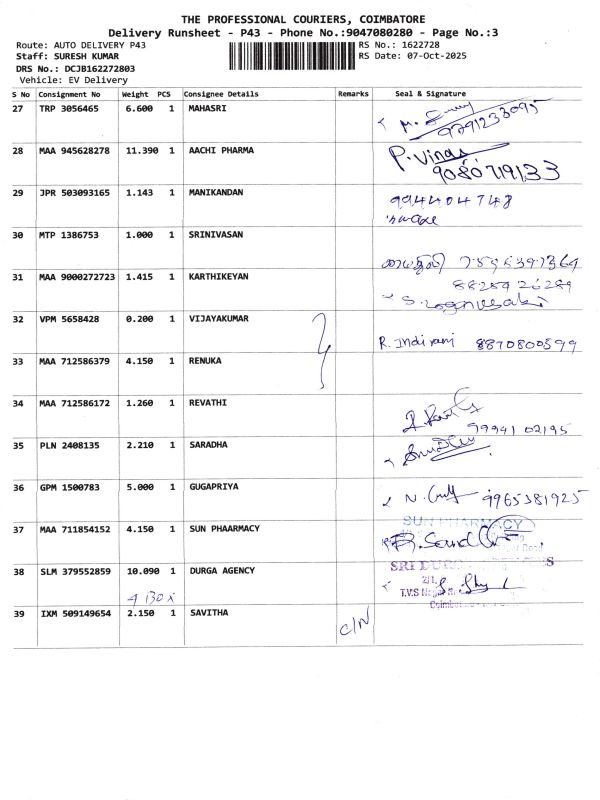 THE PROFESSIONAL COURIERS, COIMBATORE
Delivery Runsheet - P43 - Phone No.:9047080280 - Page No.:3
Route: AUTO DELIVERY P43 RS No.: 1622728
Staff: SURESH KUMAR RS Date: 07-Oct-2025
DRS No.: DCJB162272803
Vehicle: EV Delivery
S No Consignment No Weight PCS Consignee Details Remarks Seal & Signature
27 TRP 3056465 6.600 1 MAHASRI
9791233095
28 MAA 945628278 11.390 1 AACHI PHARMA P. Vinas
9080719133
29 JPR 503093165 1.143 1 MANIKANDAN 994404748
30 MTP 1386753 1.000 1 SRINIVASAN
31 MAA 9000272723 1.415 1 KARTHIKEYAN
32 VPM 5658428 0.200 1 VIJAYAKUMAR
R. Indirani 8870800599
33 MAA 712586379 4.150 1 RENUKA
34 MAA 712586172 1.260 1 REVATHI
99941 02195
35 PLN 2408135 2.210 1 SARADHA
36 GPM 1500783 5.000 1 GUGAPRIYA
9965381925
SUN PHARMACY
37 MAA 711854152 4.150 1 SUN PHAARMACY
38 SLM 379552859 10.090 1 DURGA AGENCY
2/1,
T.V.S Nagar
39 IXM 509149654 2.150 1 SAVITHA C/N